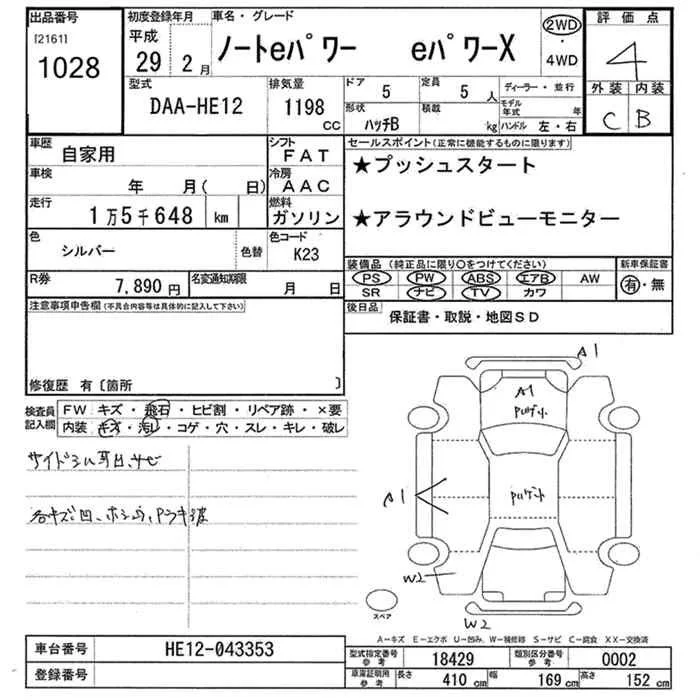 出品番号
[2161]
1028
初度登録年月
平成
29 2月
車名・グレード
ノートeパワー eパワーX
2WD
・
4WD
評価点
4
外装 内装
C B
型式
DAA-HE12
排気量
1198
CC
ドア
5
定員
5 人
形状
ハッチB
積載
kg
ディーラー・並行
モデル年式 年
ハンドル 左・右
車歴
自家用
シフト
FAT
車検
年 月( 日)
冷房
AAC
走行
1万5千648 km
燃料
ガソリン
色
シルバー
色替
色コード
K23
R券
7,890円
名変通知期限
月 日
セールスポイント(正常に機能するものに限ります)
★プッシュスタート
★アラウンドビューモニター
装備品(純正品に限り○をつけてください)
PS PW ABS エアB AW
SR ナビ TV カワ
新車保証書
有・無
後日品
保証書・取説・地図SD
注意事項申告欄(不具合内容等は具体的に記入して下さい)
修復歴 有〔箇所 〕
検査員記入欄
FW キズ・飛石・ヒビ割・リペア跡・×要
内装 キズ・汚レ・コゲ・穴・スレ・キレ・破レ
A1
A1
A1
W2
W2
スペア
A－キズ E－エクボ U－凹み W－補修跡 S－サビ C－腐食 XX－交換済
車台番号
HE12-043353
登録番号
型式指定番号
参考
18429
類別区分番号
参考
0002
車庫証明用
参考
長さ 410cm 幅 169cm 高さ 152cm